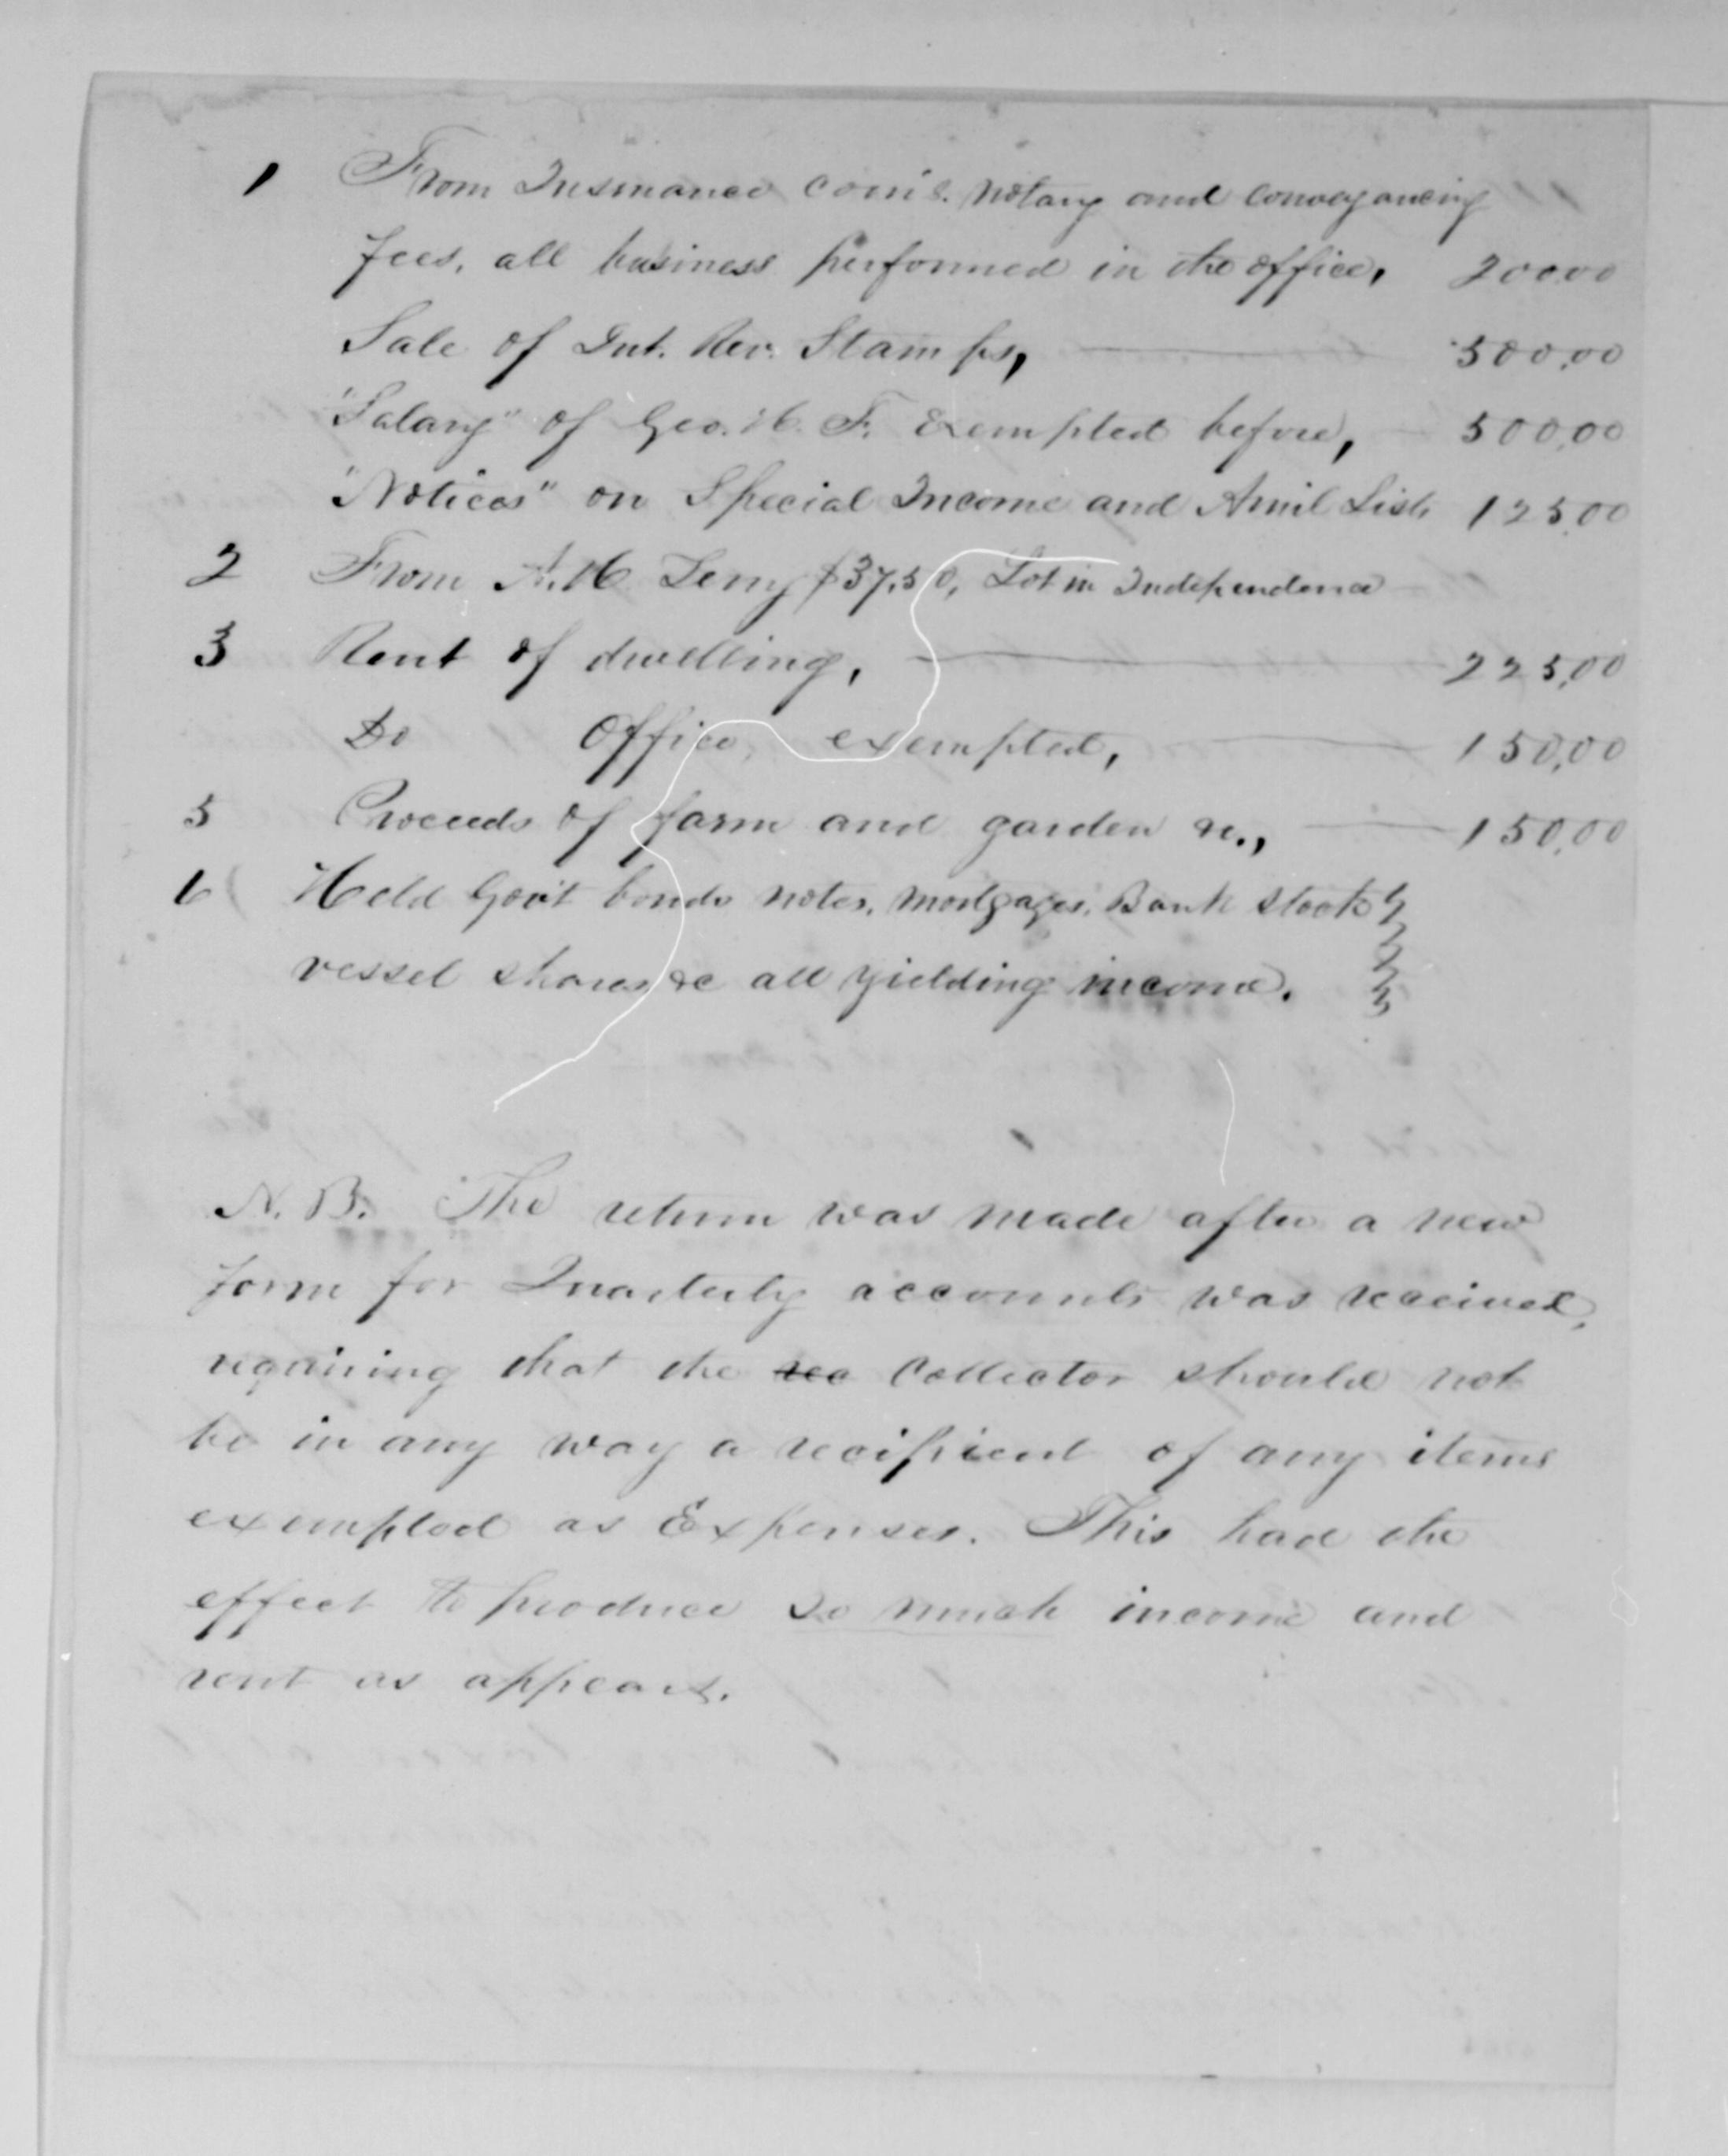 1 From Insurance com's. notary and conveyancing
fees, all business performed in the office, 200.00
Sale of Int. Rev. Stamps, 500.00
"Salary" of Geo. H. F. Exempted before, 500.00
"Notices" on Special Income and Annl Lists 125.00
2 From A. H. $37.50, Lot in Independence
3 Rent of dwelling, 225.00
Do Office, exempted, 150.00
5 Proceeds of farm and garden &c., 150.00
6 Held Gov't bonds notes, mortgages, Bank stock
vessel shares &c all yielding income.
N. B. The return was made after a new
form for Quarterly accounts was received,
requiring that the rec Collector should not
be in any way a recipient of any items
exempted as Expenses. This had the
effect to produce so much income and
rent as appears.